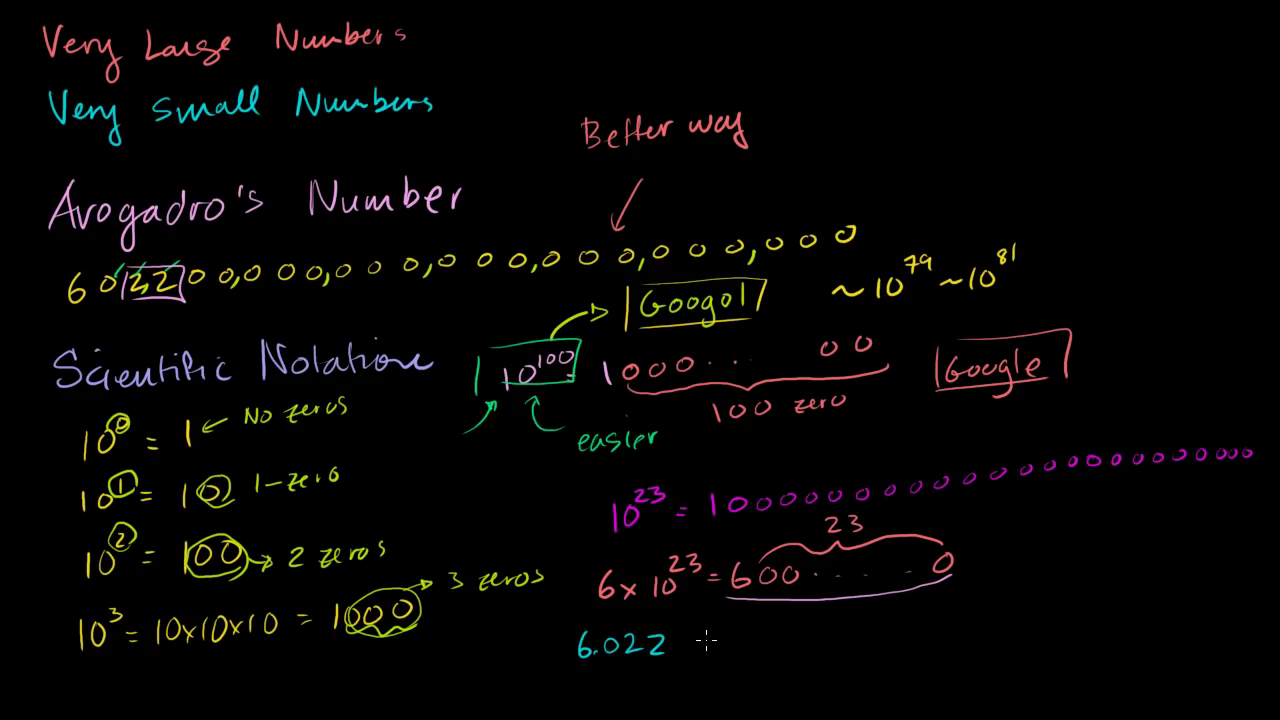 Very Large Numbers
Very Small Numbers
Better way
Avogadro's Number
6 0 2 2 0 0,0 0 0 0,0 0 0 0,0 0 0 0,0 0 0 0,0 0 0,0 0 0
Googol
~10^79 ~10^81
Scientific Notation
10^100 = 1 0 0 0 . . . 0 0
Google
100 zero
easier
10^0 = 1 No zeros
10^1 = 10 1-zero
10^2 = 100 2 zeros
10^3 = 10x10x10 = 1000 3 zeros
10^23 = 100000000000000000000000
23
6 x 10^23 = 600.....0
6.022